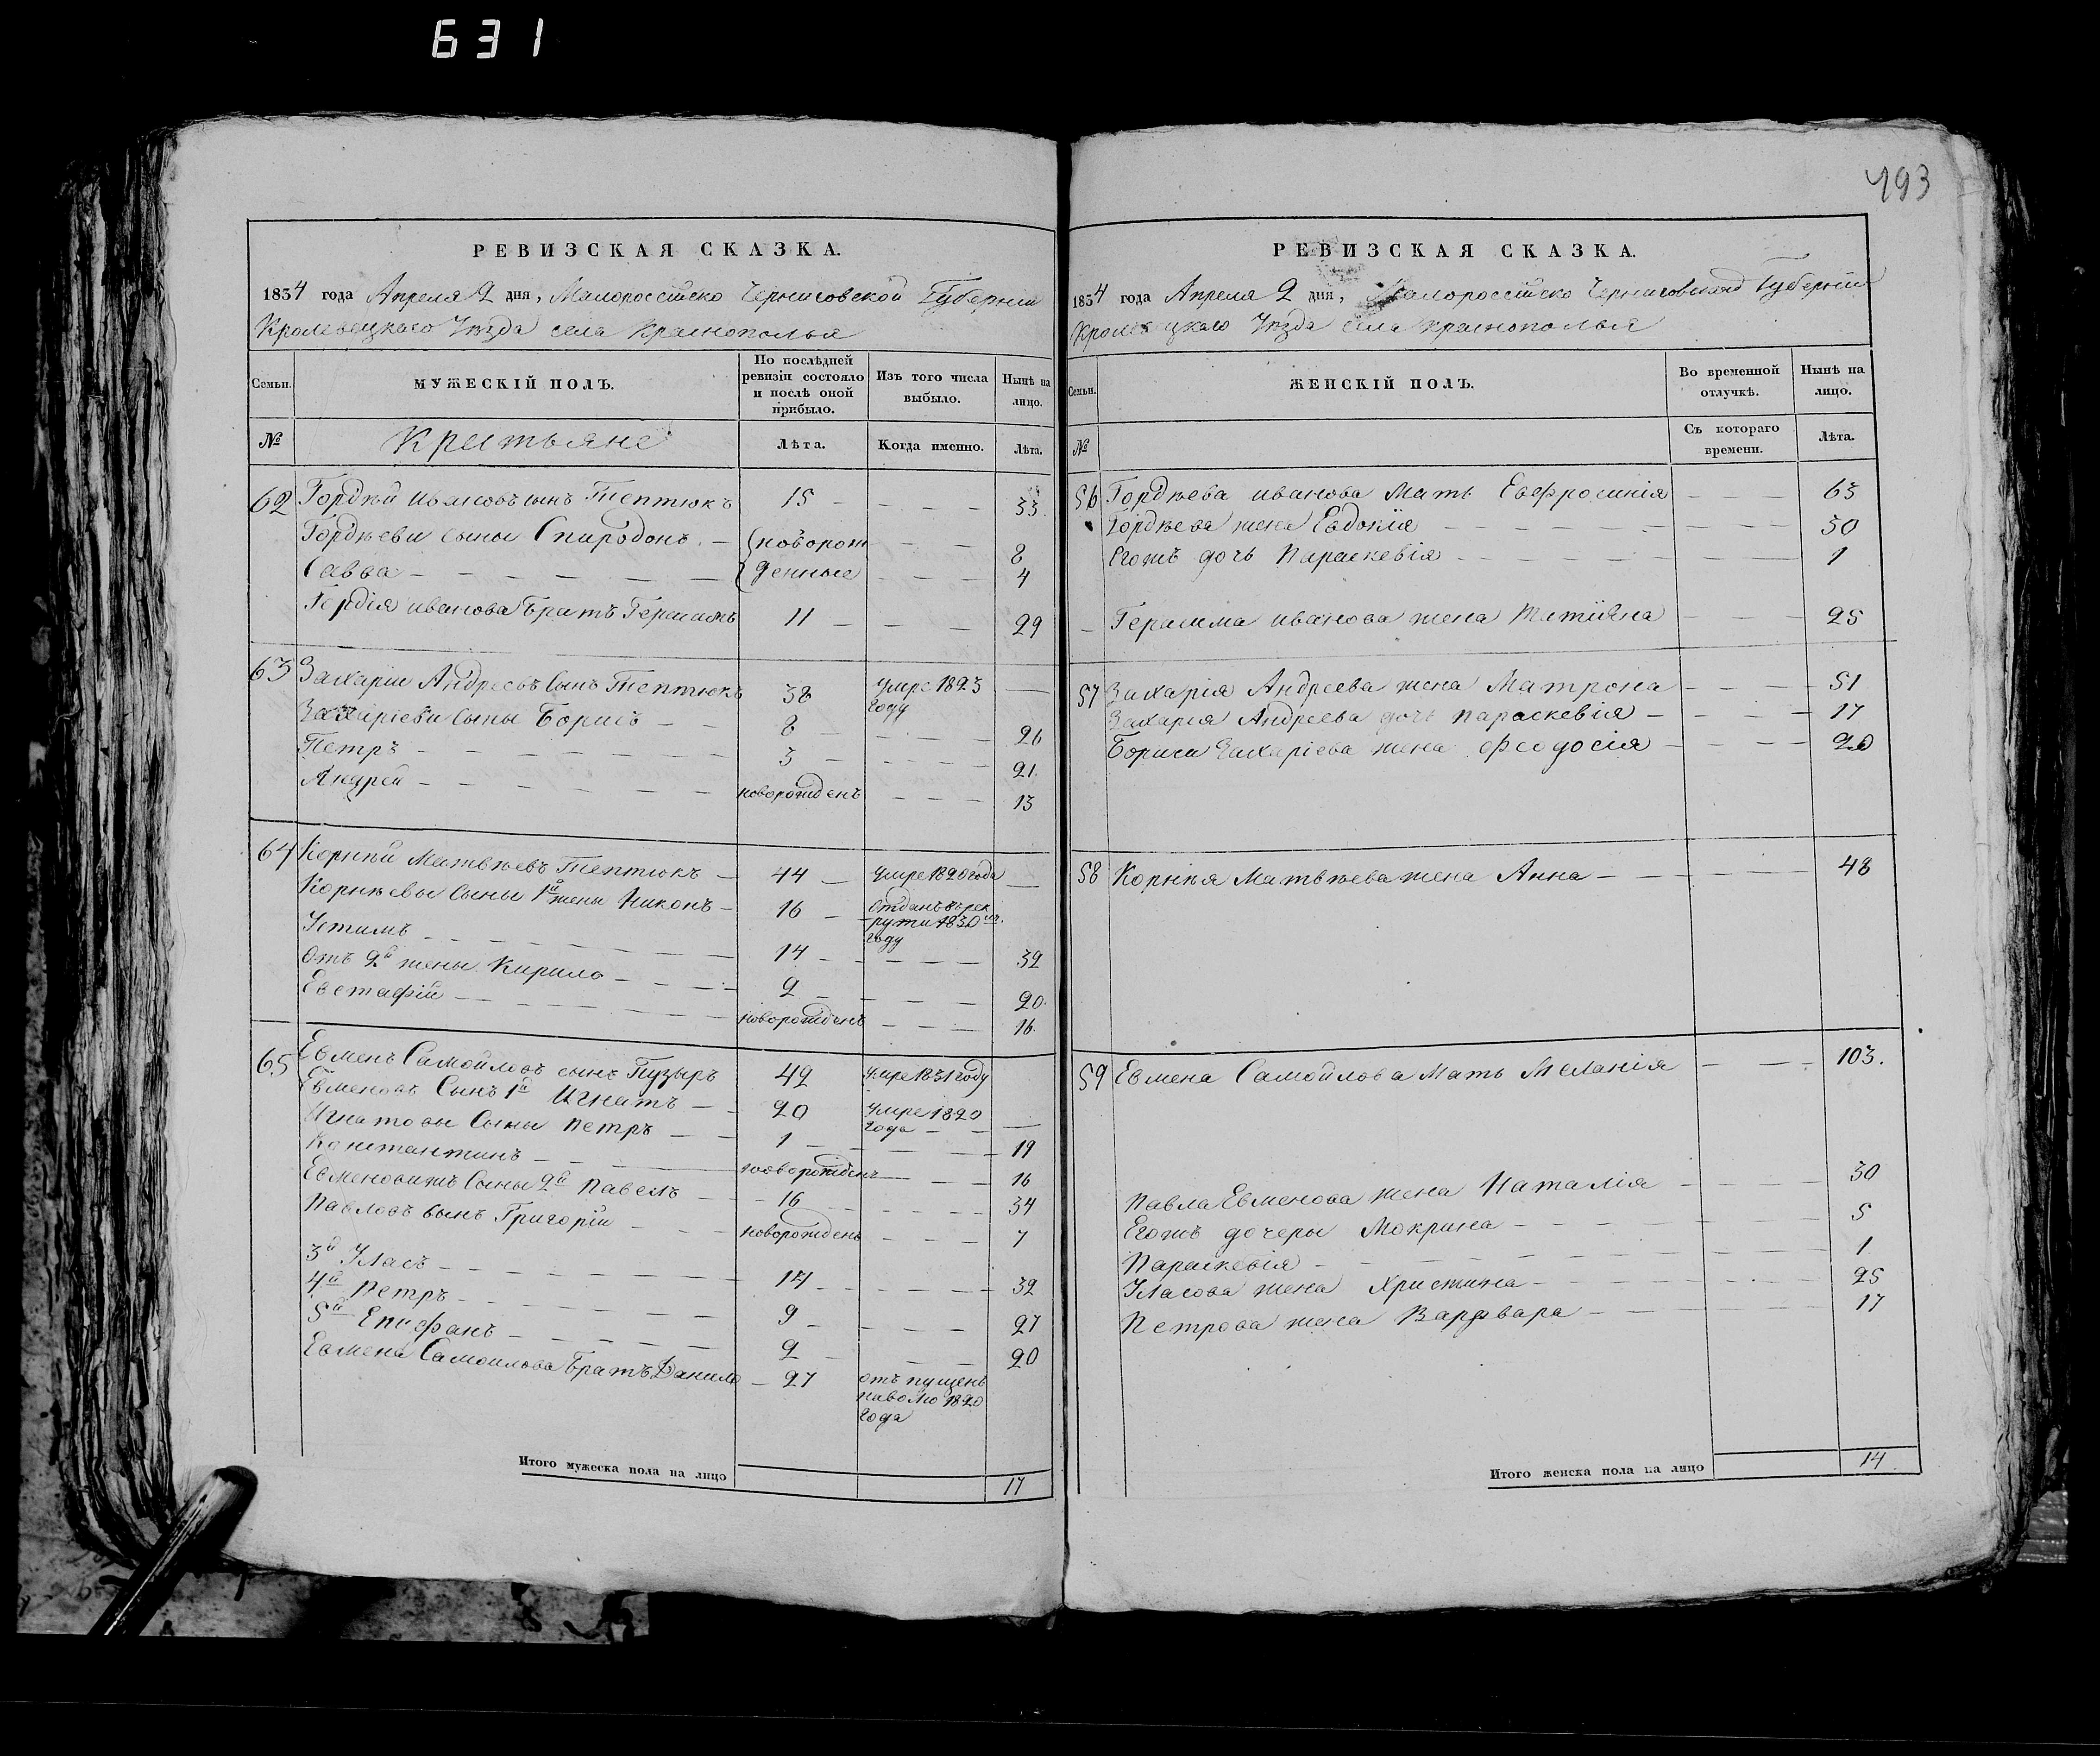 631
493
РЕВИЗСКАЯ СКАЗКА.
1834 года Апреля 2 дня, Малороссійско Черниговской Губерніи
Кролевецкаго Уѣзда села Краснополья
Семьи.
МУЖЕСКІЙ ПОЛЪ.
По послѣдней ревизіи состояло и послѣ оной прибыло.
Изъ того числа выбыло.
Нынѣ на лицо.
№ Крестьяне Лѣта. Когда именно. Лѣта.
62 Гордѣй Ивановъ сынъ Тептюкъ 15 — — — — 33.
Гордѣеви сыны Спиридонъ — (новорож — — 8
Савва — — — — — (денные — — — 4
Гордія Иванова братъ Герасимъ 11 — — — 29
63 Захарій Андреевъ сынъ Тептюкъ 38 умре 1823 году —
Захаріеви сыны Борисъ — — 8 — — — — 26
Петръ — — — — — 3 — — — — — 21.
Андрей — — — — — — новорожденъ — — — 13
64 Корнѣй Матвѣевъ Тептюкъ — 44 — умре 1820 года —
Корнѣевы сыны 1й жены Никонъ — 16 — отданъ въ рек-рути 1830мъ году
Устимъ — — — — — — 14 — — — — — 32
отъ 2й жены Кирило — — — — 2 — — — — 20.
Евстафій — — — — — — новорожденъ — — — 16.
65 Евменъ Самойловъ сынъ Пузыръ 42 умре 1831 году
Евменовъ Сынъ 1й Игнатъ — — 20 умре 1820 года — — —
Игнатовы Сыны Петръ — — 1 — — — — — 19
Константинъ — — — новорожденъ — — — 16
Евменовижъ Сыны 2й Павелъ — — 16 — — — — — 34
Павловъ сынъ Григорій — — — новорожденъ — — — 7
3й Уласъ — — — — — — 14 — — — — — 32
4й Петръ — — — — — — 9 — — — — 27
5й Епифанъ — — — — — 2 — — — — 20
Евмена Самойлова братъ Данило — 27 отъ пущенъ наволю 1820 года
Итого мужеска пола на лицо 17
РЕВИЗСКАЯ СКАЗКА.
1834 года Апреля 2 дня, Малороссійско Черниговской Губерніи
Кролевецкаго Уѣзда села Краснополья
Семьи.
ЖЕНСКІЙ ПОЛЪ.
Во временной отлучкѣ.
Нынѣ на лицо.
№ Съ котораго времени. Лѣта.
56 Гордѣева Иванова Мать Евфросинія — — 63
Гордѣева жена Евдокія — — — — — — — — 30
Егожъ дочь Параскевія — — — — — — 1
Герасима Иванова жена Татіяна — — — 25
57 Захарія Андреева жена Матрона — — — — 51
Захарія Андреева дочь Параскевія — — — — 17
Бориса Захаріева жена Феодосія — — — — 20
58 Корнѣя Матвѣева жена Анна — — — — — — 48
59 Евмена Самойлова Мать Меланія — — — 103.
Павла Евменова жена Наталія — — — — 30
Егожъ дочеры Мокрина — — — — — — — 5
Параскевія — — — — — — — — 1
Уласова жена Христина — — — — — — 25
Петрова жена Варвара — — — — — — 17
Итого женска пола на лицо 14